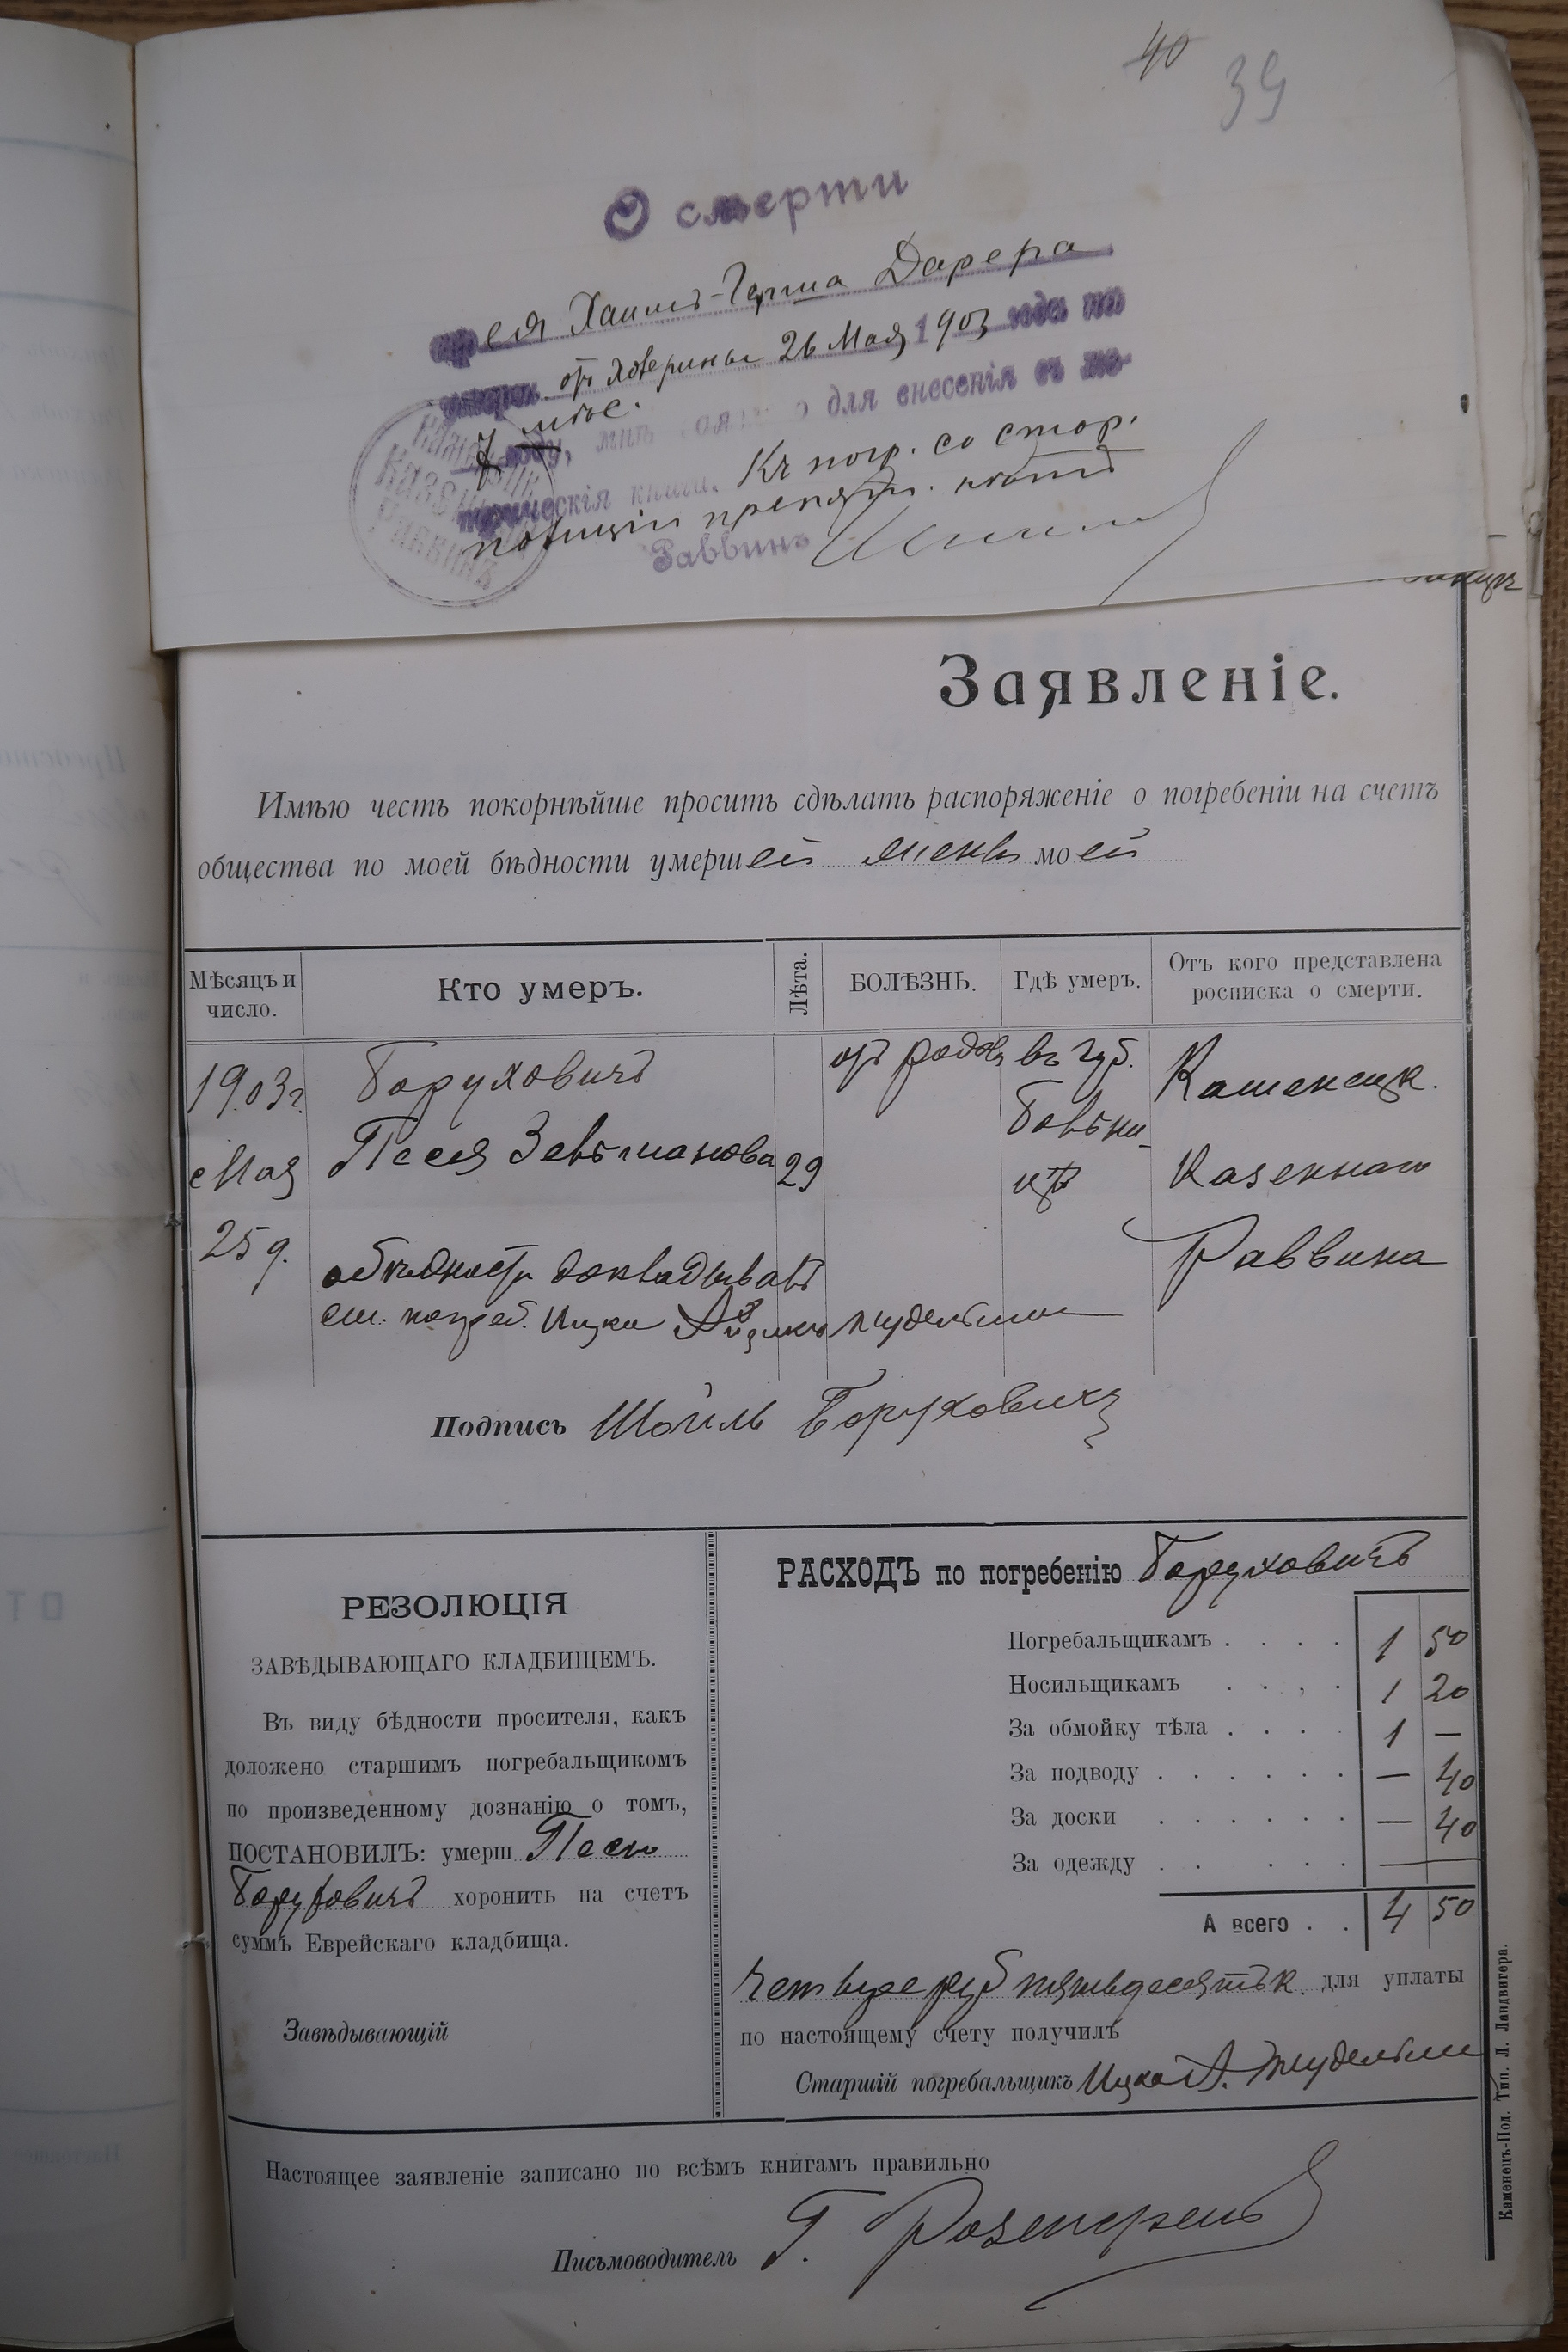 40
39
О смерти
еврея Хаимъ-Герша Дарера
умерш. отъ холерины 26 Мая 1903 года на
7 мѣс.
году, мнѣ заявлено для внесенія въ ме-
трическія книги. Къ погр. со стор.
полиціи препятс. нѣтъ
Раввинъ
Казенный Раввинъ
Заявленіе.
Имѣю честь покорнѣйше просить сдѣлать распоряженіе о погребеніи на счетъ
общества по моей бѣдности умершей женѣ моей
Мѣсяцъ и число.
Кто умеръ.
Лѣта.
БОЛѢЗНЬ.
Гдѣ умеръ.
Отъ кого представлена росписка о смерти.
1903 г. Мая 25 д.
Боруховичъ
Песя Зельманова
29
отъ родовъ
въ губ. больни-цѣ
Каменецк. Казеннаго Раввина
о бѣдности докладывалъ
ст. погреб. Ицко Айзикъ
Подпись Шоиль Боруховичъ
РЕЗОЛЮЦІЯ
ЗАВѢДЫВАЮЩАГО КЛАДБИЩЕМЪ.
Въ виду бѣдности просителя, какъ
доложено старшимъ погребальщикомъ
по произведенному дознанію о томъ,
ПОСТАНОВИЛЪ: умерш Песю
Боруховичъ хоронить на счетъ
суммъ Еврейскаго кладбища.
Завѣдывающій
РАСХОДЪ по погребенію Боруховичъ
Погребальщикамъ . . . . 1 50
Носильщикамъ . . , . 1 20
За обмойку тѣла . . . . 1 —
За подводу . . . . . . — 40
За доски . . . . . . — 40
За одежду . . . . . —
А всего . . 4 50
Четыре руб пятьдесятъ к. для уплаты
по настоящему счету получилъ
Старшій погребальщикъ Ицко А.
Настоящее заявленіе записано по всѣмъ книгамъ правильно
Письмоводитель Г. Розенгренъ
Каменецъ-Под. Тип. Л. Ландвигера.